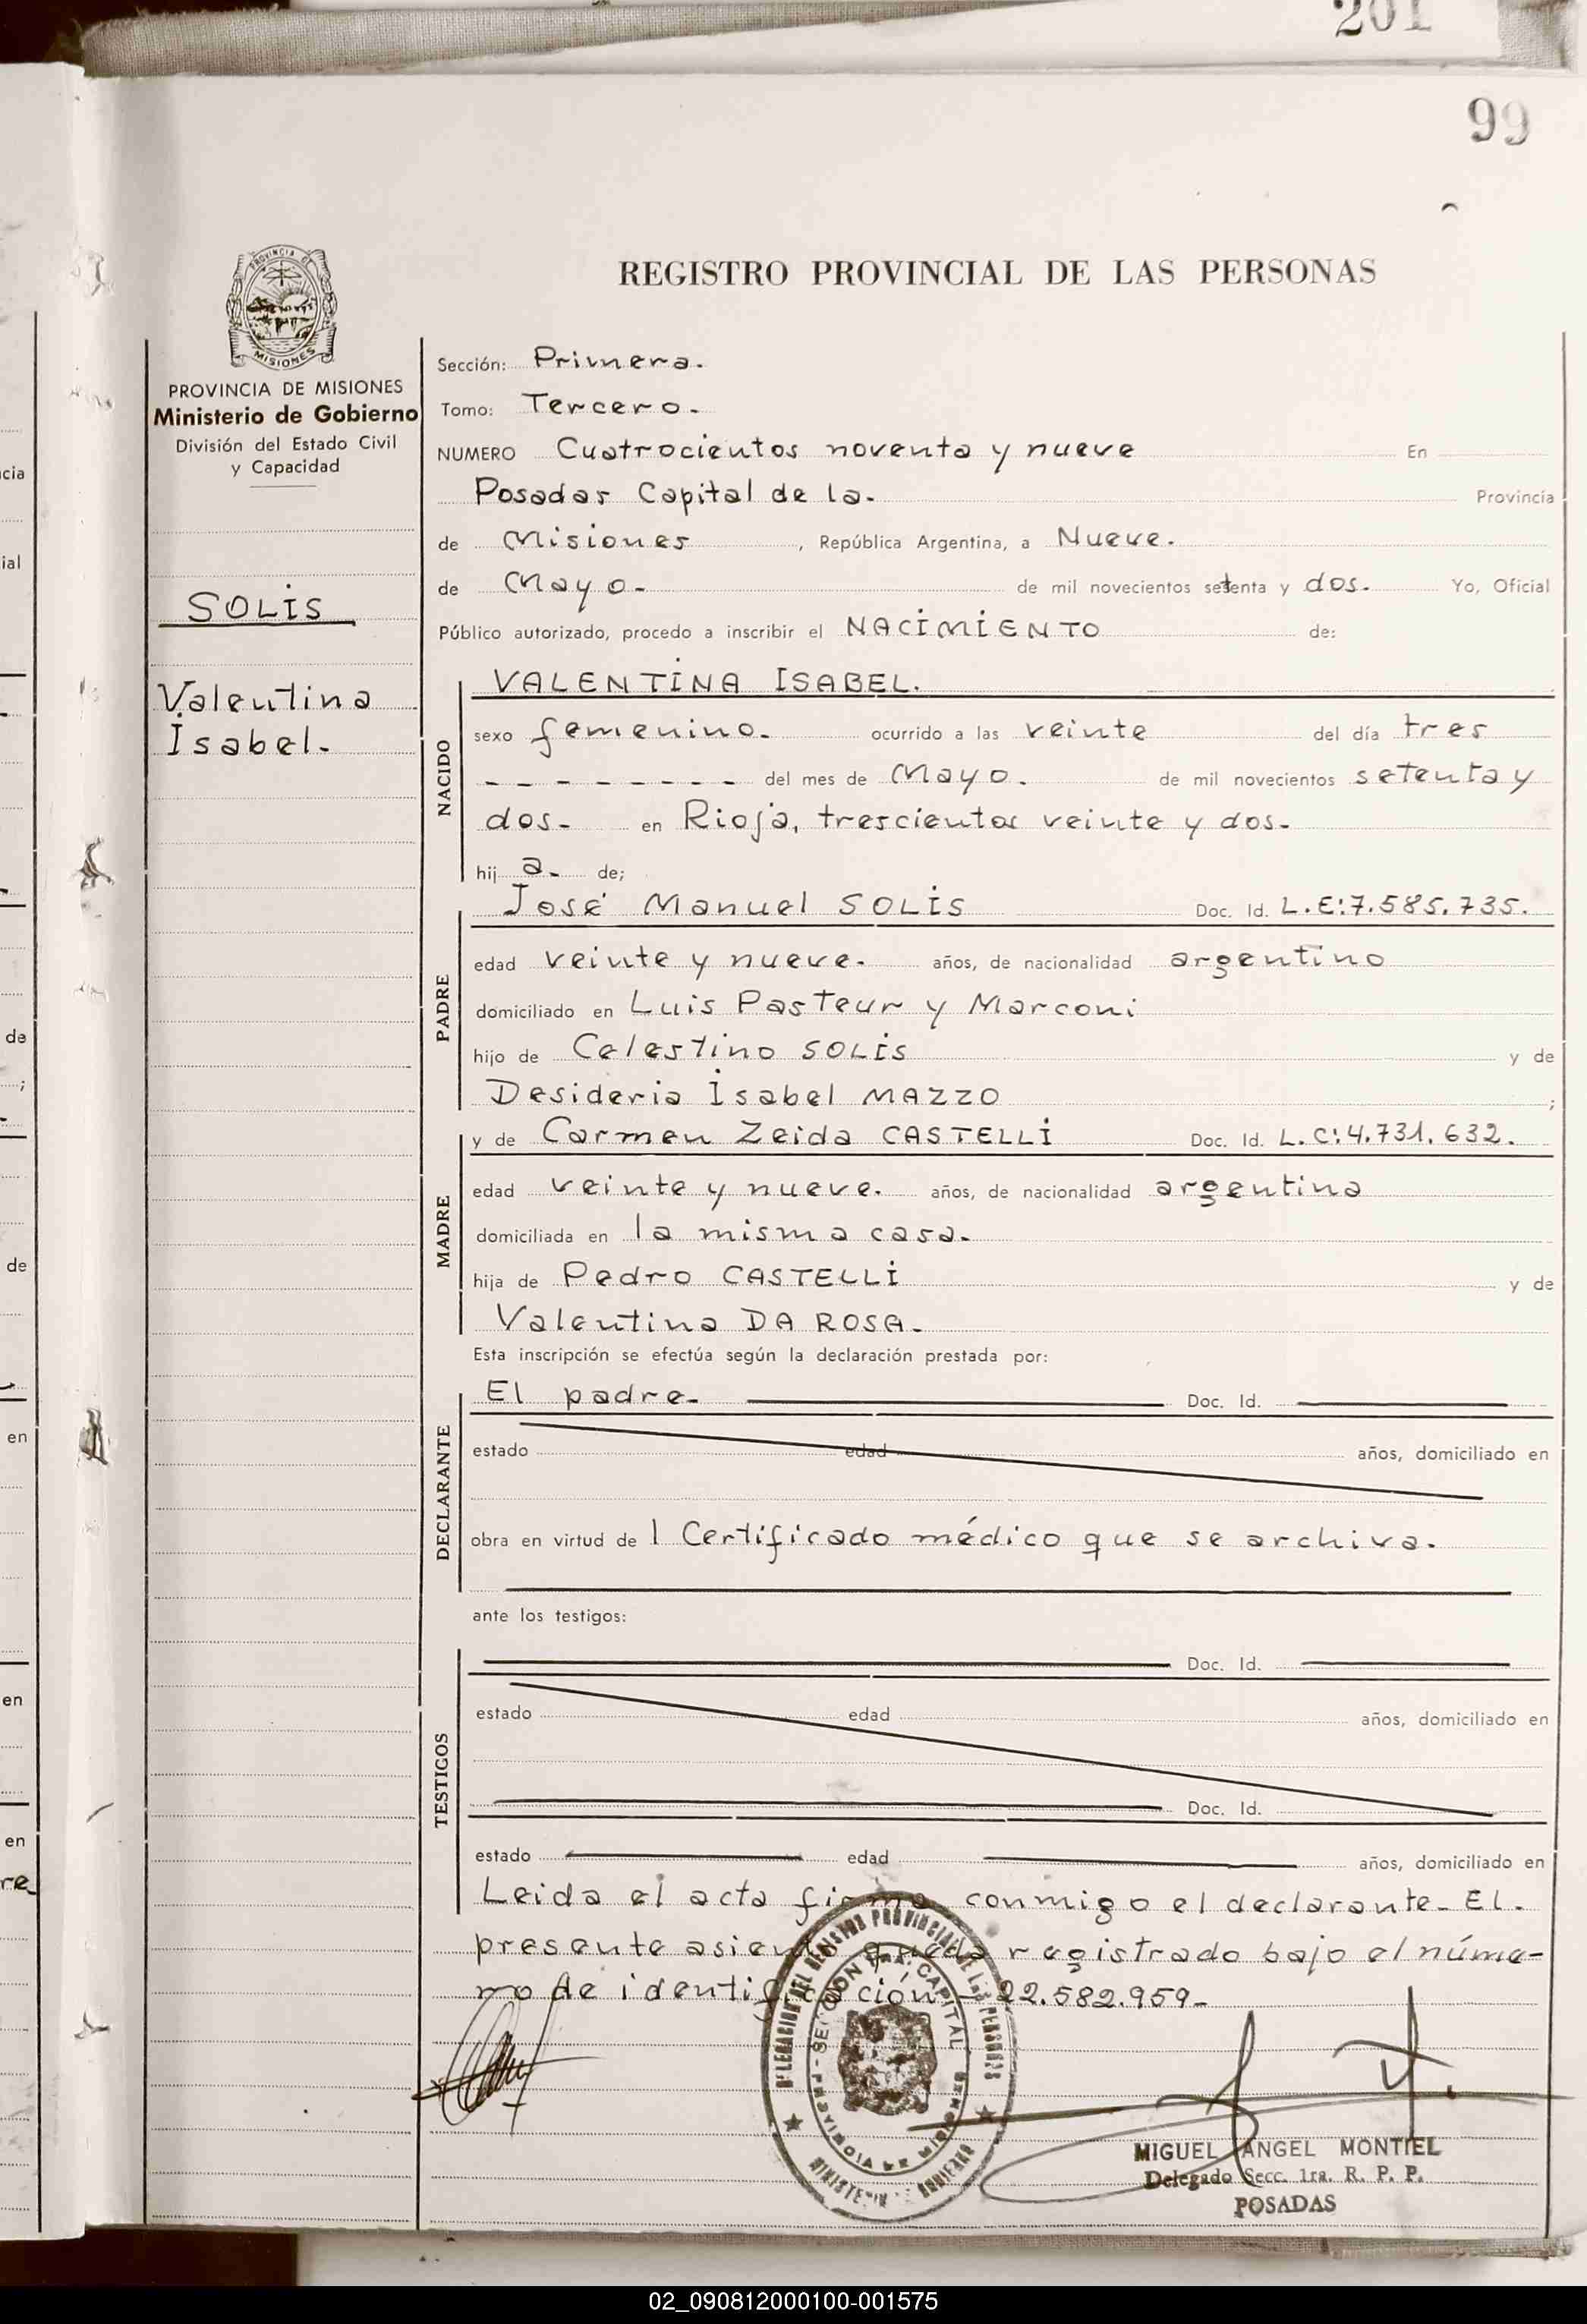 201
99
PROVINCIA DE
MISIONES
PROVINCIA DE MISIONES
Ministerio de Gobierno
División del Estado Civil
y Capacidad
SOLIS
Valentina
Isabel.-
REGISTRO PROVINCIAL DE LAS PERSONAS
Sección: Primera.
Tomo: Tercero.-
NUMERO Cuatrocientos noventa y nueve En
Posadas Capital de la.- Provincia
de Misiones, República Argentina, a Nueve.
de Mayo.- de mil novecientos setenta y dos.- Yo, Oficial
Público autorizado, procedo a inscribir el NACIMIENTO de:
NACIDO
VALENTINA ISABEL.
sexo femenino.- ocurrido a las veinte del día tres
- - - - - - - - del mes de Mayo. de mil novecientos setenta y
dos.- en Rioja, trescientos veinte y dos.-
hij a.- de;
PADRE
José Manuel SOLIS Doc. Id. L.E:7.585.735.
edad veinte y nueve.- años, de nacionalidad argentino
domiciliado en Luis Pasteur y Marconi
hijo de Celestino SOLIS y de
Desideria Isabel MAZZO ;
MADRE
y de Carmen Zeida CASTELLI Doc. Id. L.C:4.731.632.
edad veinte y nueve. años, de nacionalidad argentina
domiciliada en la misma casa.-
hija de Pedro CASTELLI y de
Valentina DA ROSA.-
Esta inscripción se efectúa según la declaración prestada por:
DECLARANTE
El padre.- Doc. Id.
estado edad años, domiciliado en
obra en virtud de 1 Certificado médico que se archiva.
ante los testigos:
TESTIGOS
Doc. Id.
estado edad años, domiciliado en
Doc. Id.
estado edad años, domiciliado en
Leida el acta firma conmigo el declarante.- El.
presente asiento queda registrado bajo el núme-
ro de identificación - 22.582.959-
DELEGACION DEL REGISTRO PROVINCIAL DE LAS PERSONAS
SECCION 1RA. CAPITAL
PROVINCIA DE MISIONES
MINISTERIO DE GOBIERNO
MIGUEL ANGEL MONTIEL
Delegado Secc. 1ra. R. P. P.
POSADAS
cia
ial
de
;
de
en
en
en
re
02_090812000100-001575